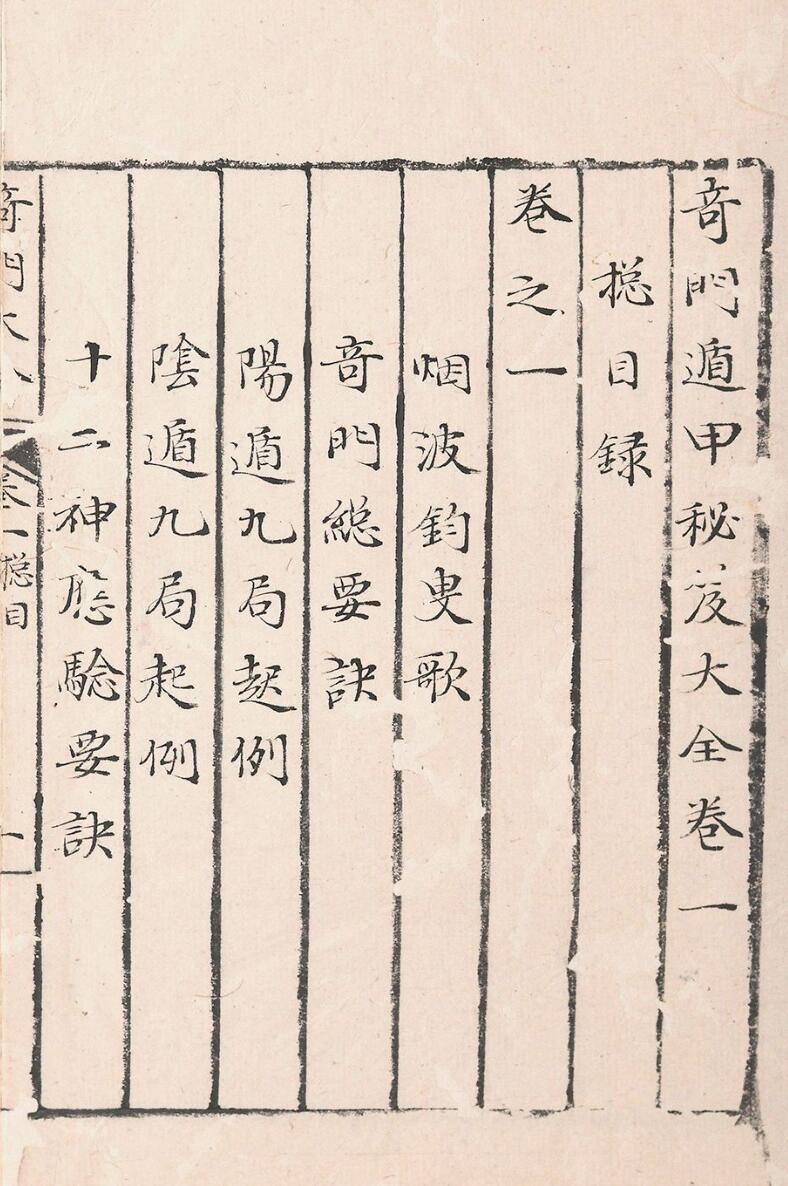 奇門遁甲秘笈大全卷一
捴目録
卷之一
烟波釣叟歌
奇門縂要訣
陽遁九局起例
陰遁九局起例
十二神應驗要訣
奇門大
卷一捴目